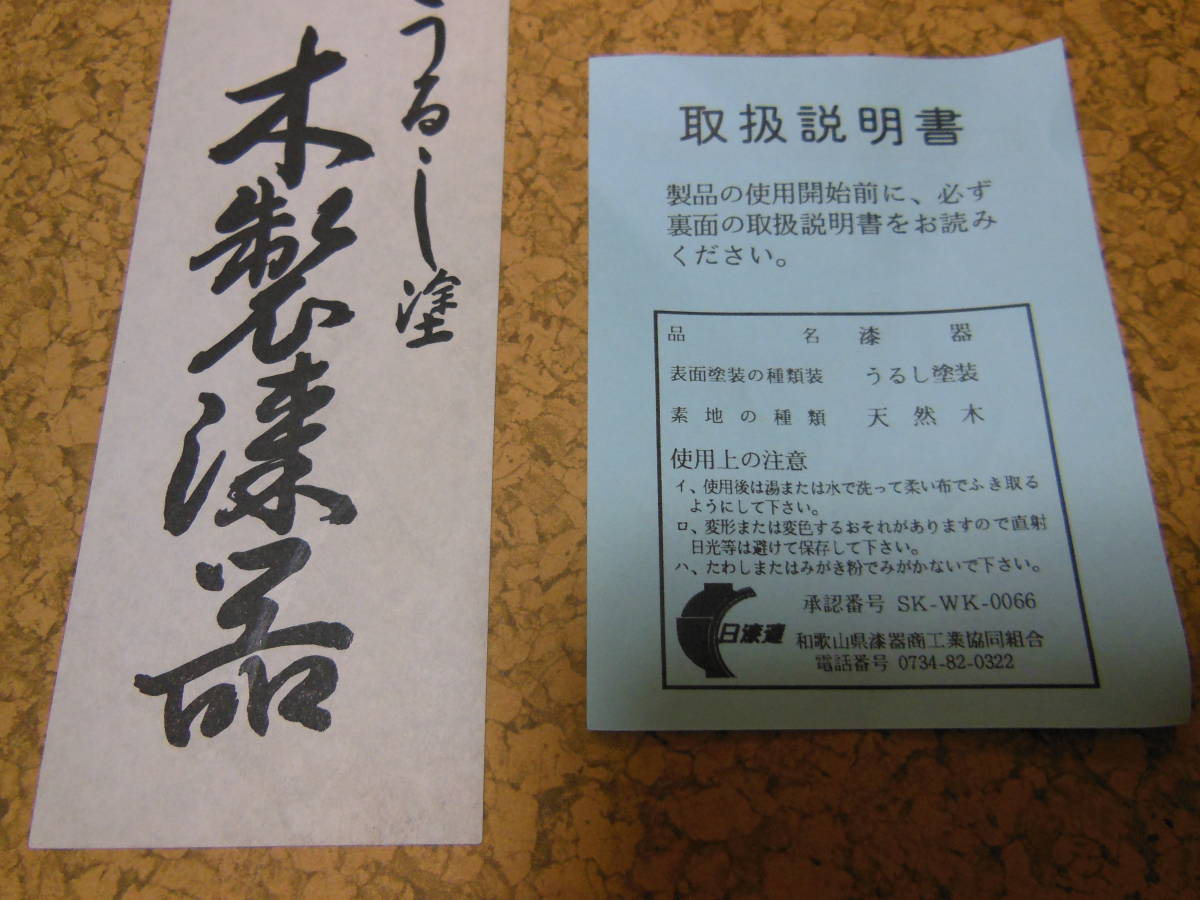 うるし塗
木製漆器
取扱説明書
製品の使用開始前に、必ず
裏面の取扱説明書をお読み
ください。
品 名 漆 器
表面塗装の種類装 うるし塗装
素地の種類 天然木
使用上の注意
イ、使用後は湯または水で洗って柔い布でふき取る
ようにして下さい。
ロ、変形または変色するおそれがありますので直射
日光等は避けて保存して下さい。
ハ、たわしまたはみがき粉でみがかないで下さい。
承認番号 SK-WK-0066
日漆連
和歌山県漆器商工業協同組合
電話番号 0734-82-0322